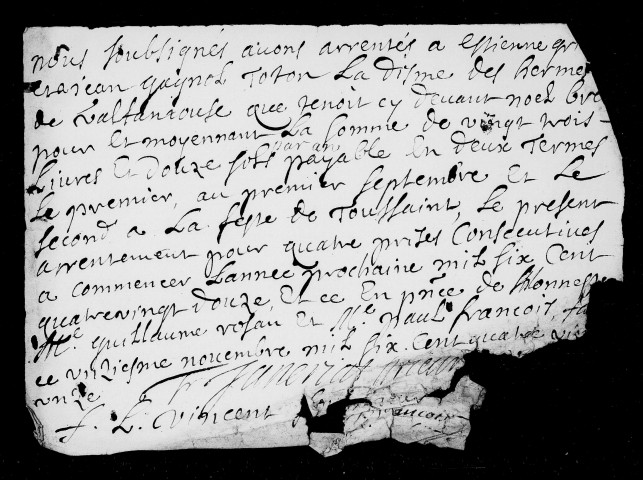 nous soubsignés avons arrentés a estienne
et a jean gagnol Toton La disme des herme
de Valfanjouse que tenoit cy devant noel
pour et moyennant La somme de vingt trois
Livres Et douze sols par an payable En deux Termes
Le premier, au premier septembre Et Le
second a La feste de Toussaint, Le present
arrentement pour quatre prises Consecutives
a commencer L'année prochaine mil six Cent
quatrevingt douze, Et ce En pñce de
Me guillaume rosan Et Me paul francois,
ce unziesme novembre mil six Cent quatre vin
unze
f. L. vincent